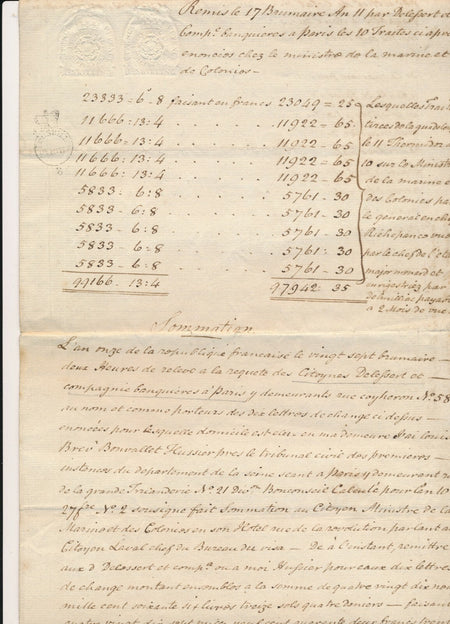 Remis le 17 Brumaire An 11 par Delessert et
Compe. banquieres a Paris les 10 Traites ci apre
enoncées chez le ministre de la marine et
de Colonies –
23333 = 6 - 8 faisant en francs 23049 = 25
11666 : 13 : 4 . . . . . . 11922 = 65
11666 : 13 : 4 . . . . . . 11922 = 65
11666 : 13 : 4 . . . . . . 11922 = 65
11666 : 13 : 4 . . . . . . 11922 = 65
5833 - 6 : 8 . . . . . . 5761 - 30
5833 - 6 : 8 . . . . . . 5761 - 30
5833 - 6 : 8 . . . . . . 5761 - 30
5833 - 6 : 8 . . . . . . 5761 : 30
5833 - 6 - 8 . . . . . . 5761 - 30
99166 - 13 : 4 97942 : 35
Lesquelles Trait
tirées de la guadelou
le 11 Thermidor
10 sur le Ministre
de la marine et
des Colonies pa
le general en che
Richepance vue
par le chef de l'éta
major menard et
enregistrez par
de milliac payable
a 2 Mois de vue
Sommation
L'an onze de la republique francaise le vingt sept brumaire –
deux Heures de relevé a la requete des Citoyens Delessert et –
compagnie banquieres a Paris y demeurants rue coqheron No. 58
au nom et comme porteurs des dix lettres de change ci dessus –
enoncées pour lesquelle domicile est elu en ma demeure J'ai louis
Bonvallet Huissier pres le tribunal civil des premieres –
instances du departement de la seine seant a Paris y demeurant r
de la grande Truanderie No 21 dion. Bonconseil pour lan 10
No 2 soussigné fait Sommation au Citoyen Ministre de la
Marine et des Colonies en son Hotel rue de la revolution parlant au
Citoyen Laval chef du Bureau du visa – De à l'instant, remettre
aux d Delessert et compe. ou a moi Huissier pour eaux dix lettres
de change montant ensembles a la somme de quatre vingt dix neu
mille cent soixante six livres treize sols quatre deniers – faisant
quatre vingt dix sept mille neuf cent quarante deux francs trent